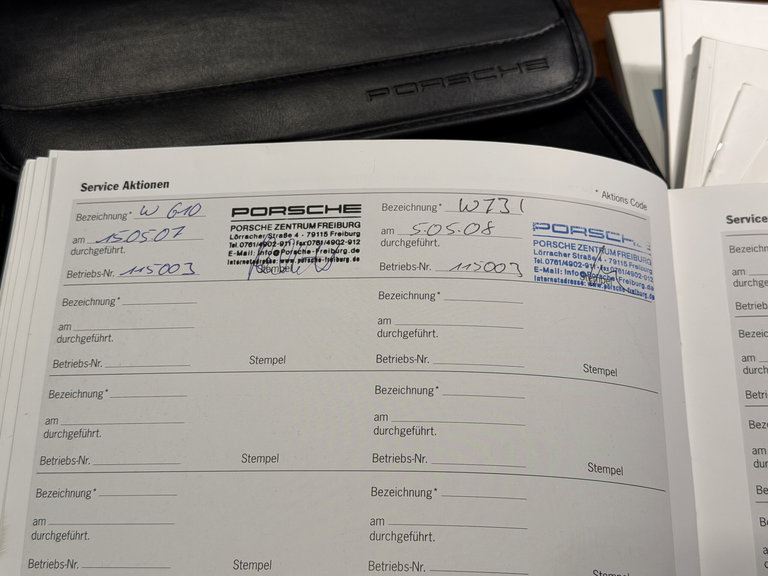 PORSCHE
Service Aktionen
* Aktions Code
Bezeichnung* W 610
am 15.05.07
durchgeführt.
Betriebs-Nr. 115003
PORSCHE
PORSCHE ZENTRUM FREIBURG
Lörracher Straße 4 - 79115 Freiburg
Tel. 0761/4902-911 · Fax 0761/4902-912
E-Mail: info@Porsche-Freiburg.de
Internetadresse: www.porsche-freiburg.de
Stempel
Bezeichnung* W731
am 5.05.08
durchgeführt.
Betriebs-Nr. 115003
PORSCHE
PORSCHE ZENTRUM FREIBURG
Lörracher Straße 4 - 79115 Freiburg
Tel. 0761/4902-911 · Fax 0761/4902-912
E-Mail: info@Porsche-Freiburg.de
Internetadresse: www.porsche-freiburg.de
Stempel
Bezeichnung*
am
durchgeführt.
Betriebs-Nr.
Stempel
Bezeichnung*
am
durchgeführt.
Betriebs-Nr.
Stempel
Bezeichnung*
am
durchgeführt.
Betriebs-Nr.
Stempel
Bezeichnung*
am
durchgeführt.
Betriebs-Nr.
Stempel
Bezeichnung*
am
durchgeführt.
Betriebs-Nr.
Stempel
Bezeichnung*
am
durchgeführt.
Betriebs-Nr.
Stempel
Service
am
am
am